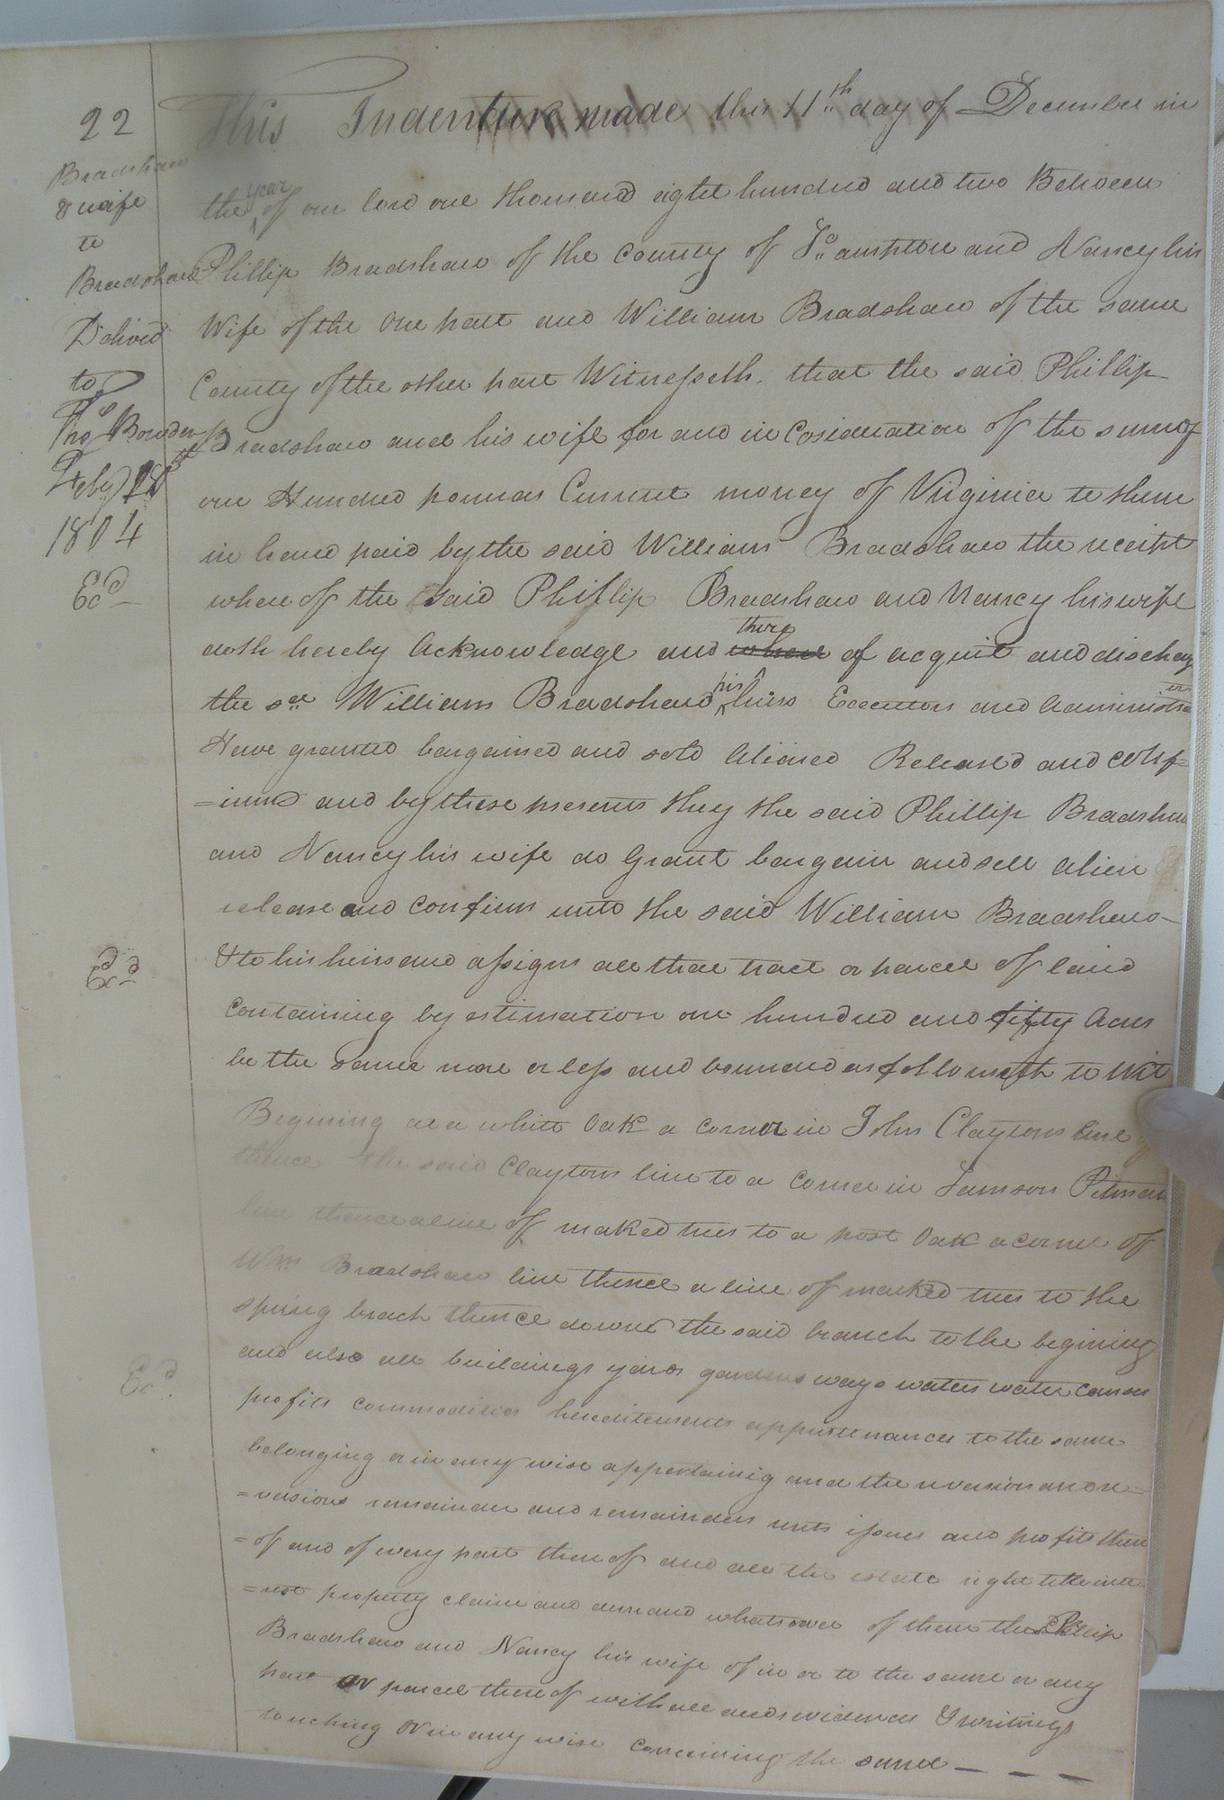 22
Bradshaw
& wife
to
Bradshaw
Deliverd
to
Thos Bowden
Feby
1804
Exd
Exd
Exd
This Indenture made this 11th day of December in
the year of our lord one thousand eight hundred and two Between
Phillip Bradshaw of the County of So..ampton and Nancy his
Wife of the One part and William Bradshaw of the same
County of the other part Witnesseth. that the said Phillip
Bradshaw and his wife for and in Cosideration of the sum of
one Hundred pounds Current money of Virginia to them
in hand paid by the said William Bradshaw the receipt
where of the said Phillip Bradshaw and Nancy his wife
doth hereby Acknowledge and there of acquit and discharg
the sd William Bradshaw his heirs Executors and Administra
Have granted bargained and sold Aliened Released and conf=
=irmd and by these presents they the said Phillip Bradshaw
and Nancy his wife do Grant bargain and sell alien
release and confirm unto the said William Bradshaw
& to his heirs and assigns all that tract or parcel of land
Containing by estimation one hundred and fifty Acres
be the same more or less and bounded as followeth to Wit
Begining at a white Oak a corner in John Claytons line
thence the said Claytons line to a Corner in Samson Pitman
line thence a line of maked trees to a post Oak a corner of
Wm Bradshaw line thence a line of marked trees to the
spring brach thence down the said branch to the begining
and also all buildings yards gardens ways waters water Corses
profits commodities hereditements appurtenances to the same
belonging or in any wise appertainig and the reversion and re=
=versions remainder and remainders rents issues and profits there
=of and of every part there of and all the estate right title inte
=rest property claim and demand whatsover of them the sd Phillip
Bradshaw and Nancy his wife of in or to the same or any
part or parcel there of with all and evidences & writings
touching Or in any wise concerning the same — — —